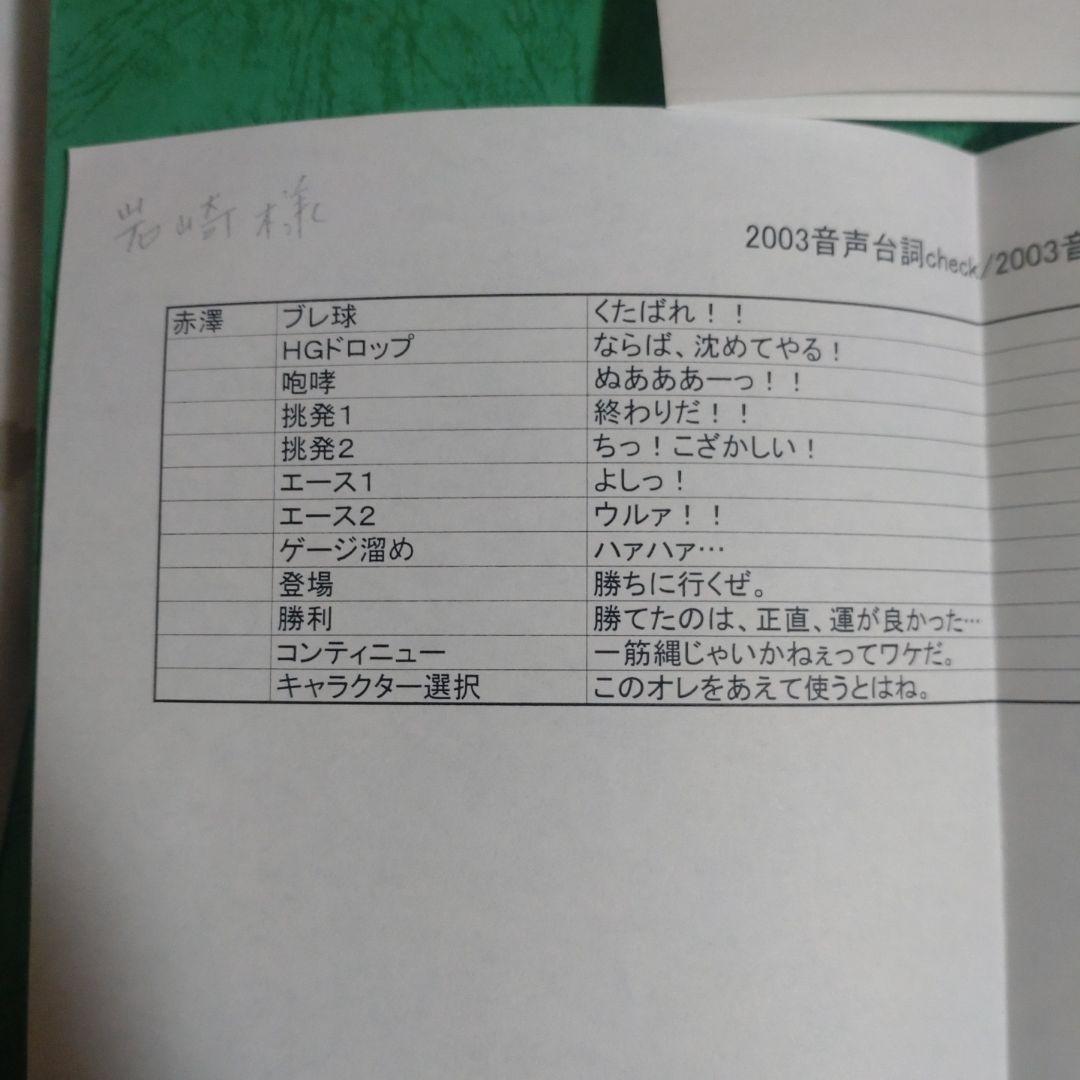 岩崎様
2003音声台詞check/2003音
赤澤 ブレ球 くたばれ！！
HGドロップ ならば、沈めてやる！
咆哮 ぬあああーっ！！
挑発1 終わりだ！！
挑発2 ちっ！こざかしい！
エース1 よしっ！
エース2 ウルァ！！
ゲージ溜め ハァハァ…
登場 勝ちに行くぜ。
勝利 勝てたのは、正直、運が良かった…
コンティニュー 一筋縄じゃいかねぇってワケだ。
キャラクター選択 このオレをあえて使うとはね。